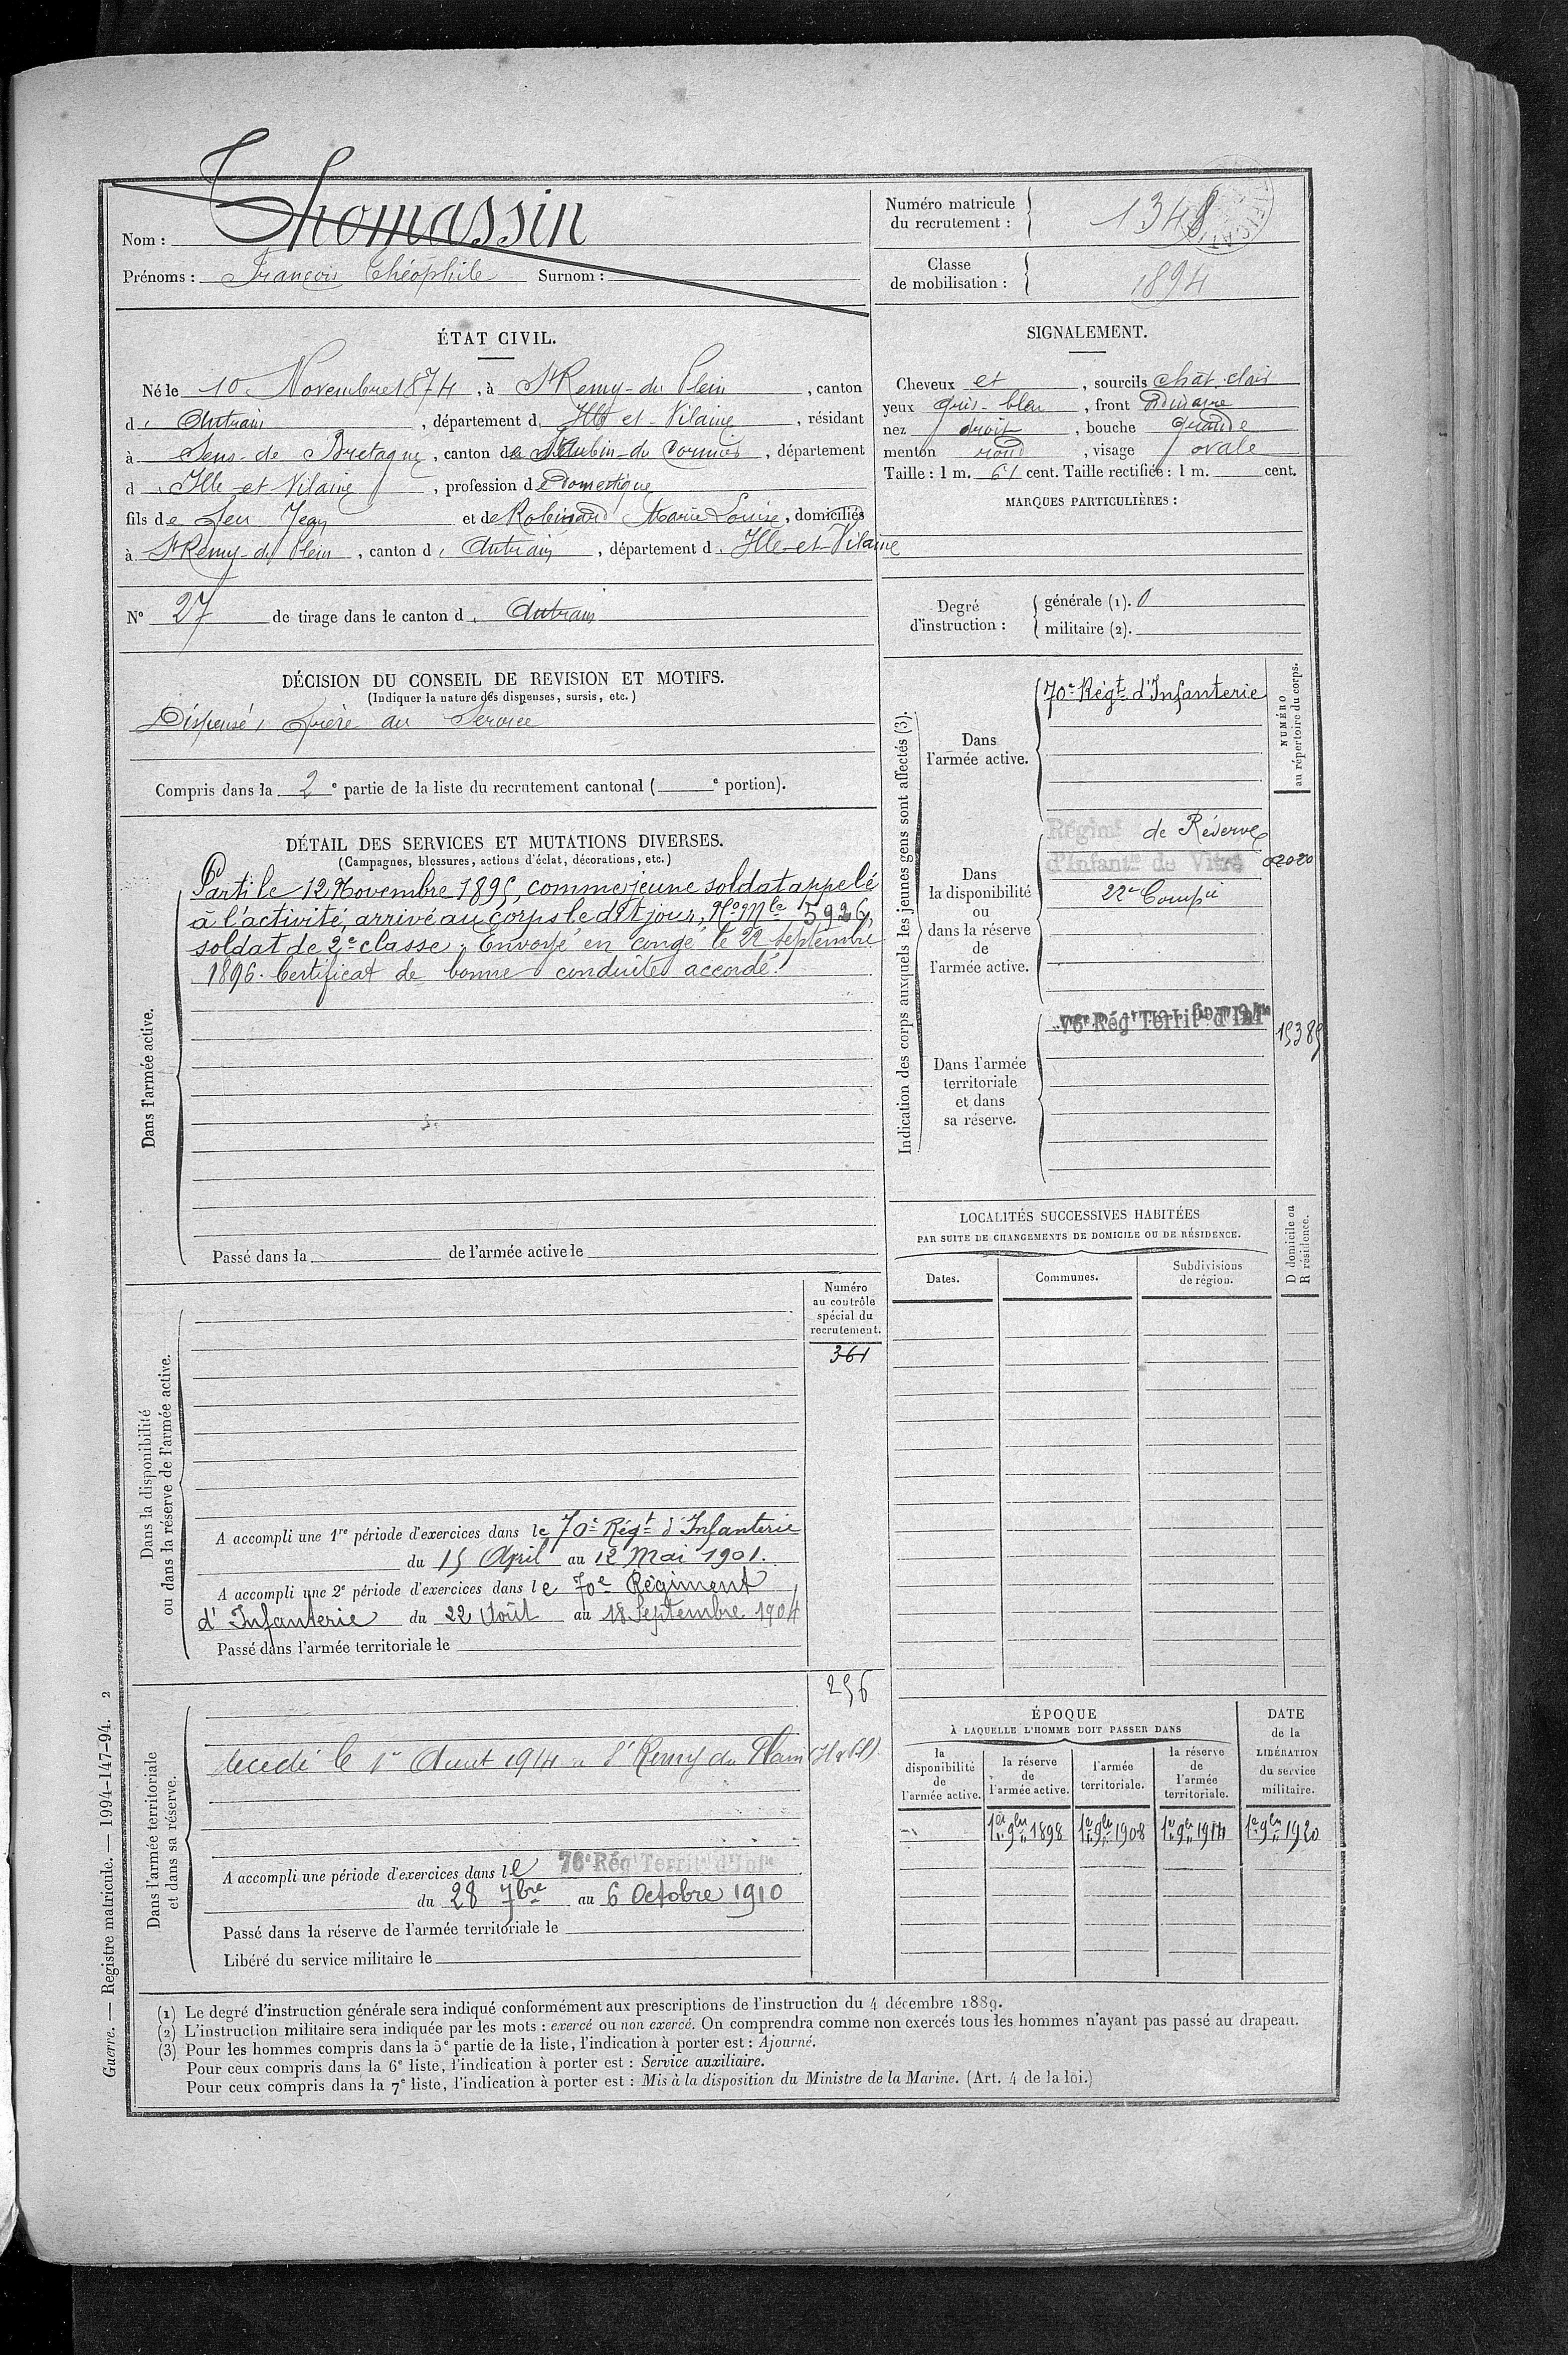 Nom : Thomassin
Prénoms : François Théophile Surnom :
Numéro matricule
du recrutement :
Classe
de mobilisation : 1894
ÉTAT CIVIL.
Né le 10 Novembre 1874, à St Remy-du Plein, canton
d'Antrain, département d'Ille et-Vilaine, résidant
à Sens-de Bretagne, canton de St Aubin-du Cormier, département
d'Ille-et Vilaine, profession de domestique
fils de feu Jean et de Robinard Marie Louise, domiciliés
à St Remy-du Plein, canton d'Antrain, département d'Ille-et-Vilaine
No 27 de tirage dans le canton d'Antrain
DÉCISION DU CONSEIL DE REVISION ET MOTIFS.
(Indiquer la nature des dispenses, sursis, etc.)
Dispensé, frère au Service
Compris dans la 2e partie de la liste du recrutement cantonal ( e portion).
SIGNALEMENT.
Cheveux et, sourcils chât. clair
yeux gris-bleu, front ordinaire
nez droit, bouche grande
menton rond, visage ovale
Taille : 1 m. 61 cent. Taille rectifiée : 1 m. cent.
MARQUES PARTICULIÈRES :
Degré
d'instruction :
générale (1). 0
militaire (2).
DÉTAIL DES SERVICES ET MUTATIONS DIVERSES.
(Campagnes, blessures, actions d'éclat, décorations, etc.)
Dans l'armée active.
Parti le 12 Novembre 1895, comme jeune soldat appelé
à l'activité, arrivé au corps le dit jour, No Mle 5926,
soldat de 2e classe. Envoyé en congé le 22 septembre
1896. Certificat de bonne conduite accordé.
Passé dans la de l'armée active le
Indication des corps auxquels les jeunes gens sont affectés (3).
NUMÉRO
au répertoire du corps.
Dans
l'armée active.
70e Régt d'Infanterie
Dans
la disponibilité
ou
dans la réserve
de
l'armée active.
Régimt de Réserve
d'Infantie de Vitré
02020
22e Compie
Dans l'armée
territoriale
et dans
sa réserve.
76e Régt Territal d'Infie
15385
LOCALITÉS SUCCESSIVES HABITÉES
PAR SUITE DE CHANGEMENTS DE DOMICILE OU DE RÉSIDENCE.
Dates.
Communes.
Subdivisions
de région.
D domicile ou
R résidence.
Dans la disponibilité
ou dans la réserve de l'armée active.
Numéro
au contrôle
spécial du
recrutement.
361
A accompli une 1re période d'exercices dans le 70e Régt d'Infanterie
du 15 April au 12 Mai 1901.
A accompli une 2e période d'exercices dans le 70e Régiment
d'Infanterie du 22 Août au 18 Septembre 1904
Passé dans l'armée territoriale le
Dans l'armée territoriale
et dans sa réserve.
256
décédé le 1er Aout 1914 à St Remy du Plain (I et V)
A accompli une période d'exercices dans le 76e Régt Territal d'Infie
du 28 7bre au 6 Octobre 1910
Passé dans la réserve de l'armée territoriale le
Libéré du service militaire le
ÉPOQUE
À LAQUELLE L'HOMME DOIT PASSER DANS
la
disponibilité
de
l'armée active.
la réserve
de
l'armée active.
l'armée
territoriale.
la réserve
de
l'armée
territoriale.
DATE
de la
LIBÉRATION
du service
militaire.
1er 9bre 1898
1er 9bre 1908
1er 9bre 1914
1er 9bre 1920
(1) Le degré d'instruction générale sera indiqué conformément aux prescriptions de l'instruction du 4 décembre 1889.
(2) L'instruction militaire sera indiquée par les mots : exercé ou non exercé. On comprendra comme non exercés tous les hommes n'ayant pas passé au drapeau.
(3) Pour les hommes compris dans la 5e partie de la liste, l'indication à porter est : Ajourné.
Pour ceux compris dans la 6e liste, l'indication à porter est : Service auxiliaire.
Pour ceux compris dans la 7e liste, l'indication à porter est : Mis à la disposition du Ministre de la Marine. (Art. 4 de la loi.)
Guerre. — Registre matricule. — 1994-147-94. 2